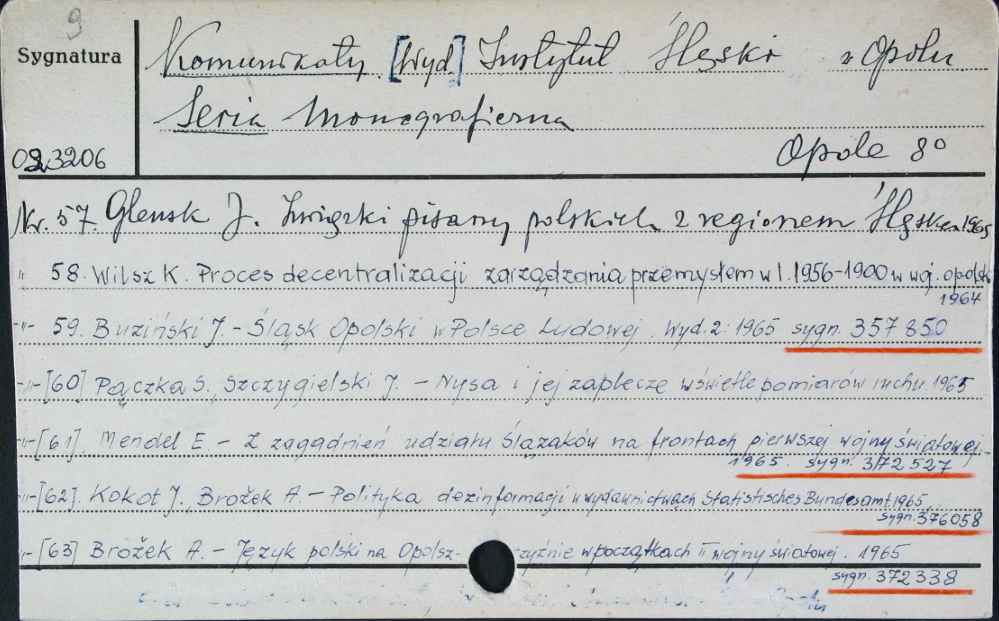 9
Sygnatura
Komunikaty [Wyd] Instytut Śląski w Opolu
Seria Monograficzna
023206
Opole 8°
Nr. 57. Glensk J. Związki pisarzy polskich z regionem Śląskim 1965
" 58. Wilsz K. Proces decentralizacji zarządzania przemysłem w l. 1956-1900 w woj. opolsk
1964
-"- 59. Buziński J - Śląsk Opolski w Polsce Ludowej. Wyd. 2. 1965 sygn. 357850
-"- [60] Pączka S, Szczygielski J. - Nysa i jej zaplecze w świetle pomiarów ruchu. 1965
-"- [61]. Mendel E - Z zagadnień udziału Ślązaków na frontach pierwszej wojny światowej.-
1965. sygn. 372527
-"- [62]. Kokot J. Brożek A. - Polityka dezinformacji w wydawnictwach Statistisches Bundesamt. 1965,
sygn. 376058
-"- [63] Brożek A. - Język polski na Opolsz- czyźnie w początkach II wojny światowej. 1965
sygn. 372338